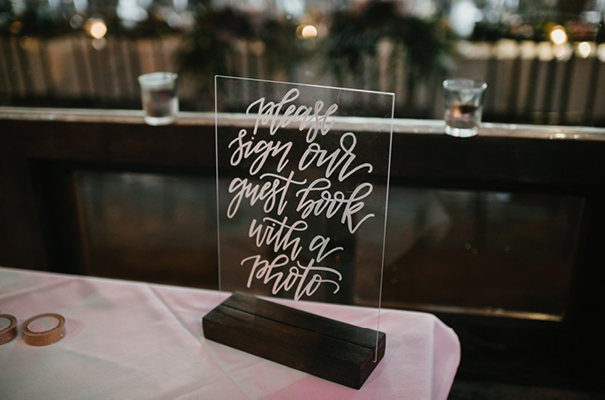 please
sign our
guest book
with a
photo